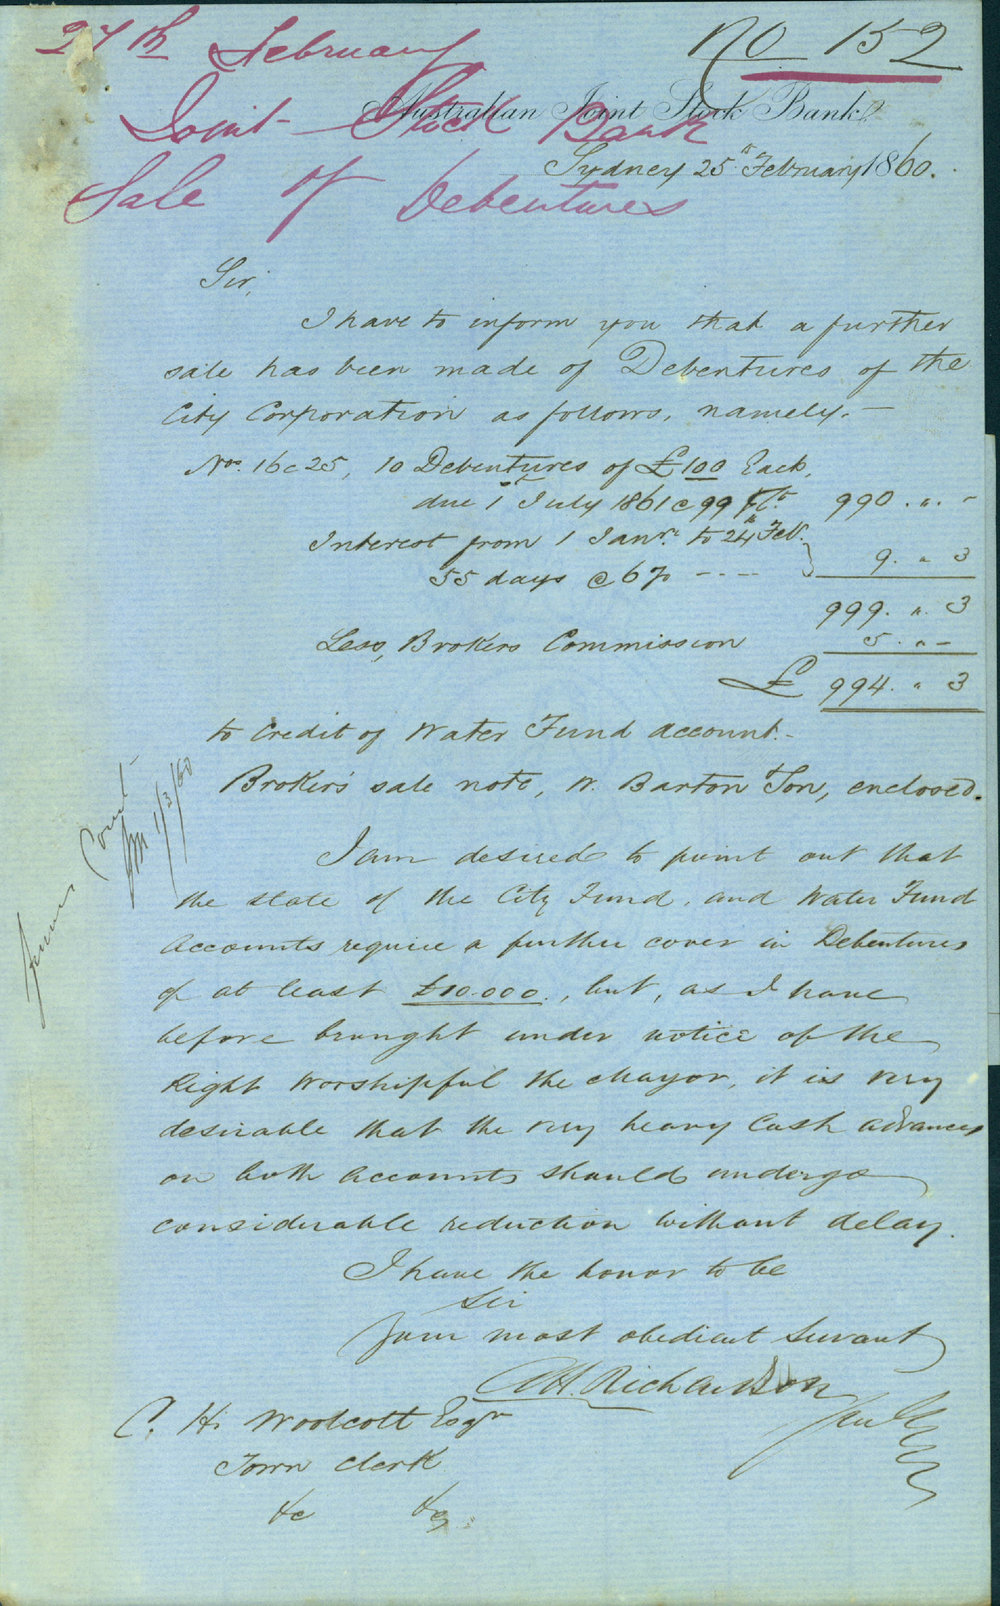 27th February
No 152
Joint Stock Bank
Australian Joint Stock Bank
Sydney 25th February 1860.
Sale of Debentures
Sir,
I have to inform you that a further
sale has been made of Debentures of the
City Corporation as follows, namely. —
Nos. 16 @ 25, 10 Debentures of £100 Each,
due 1st July 1861 @ 99 p Ct. 990 . „ . -
Interest from 1 Jany. to 24th Feb.
55 days @ 6 % - - - - 9. „ 3
999. „. 3
Less, Brokers Commission 5 . „ -
£ 994. „ 3
to Credit of Water Fund account. -
Broker's sale note, W. Barton Son, enclosed.
I am desired to point out that
the state of the City Fund, and Water Fund
Accounts require a further cover in Debentures
of at least £10.000., but, as I have
before brought under notice of the
Right Worshipful the Mayor, it is very
desirable that the very heavy Cash advances
on both Accounts should undergo
considerable reduction without delay.
I have the honor to be
Sir
Your most obedient Servant
AH. Richardson
C. H. Woolcott Esqr
Town Clerk
&c &c
1/3/60